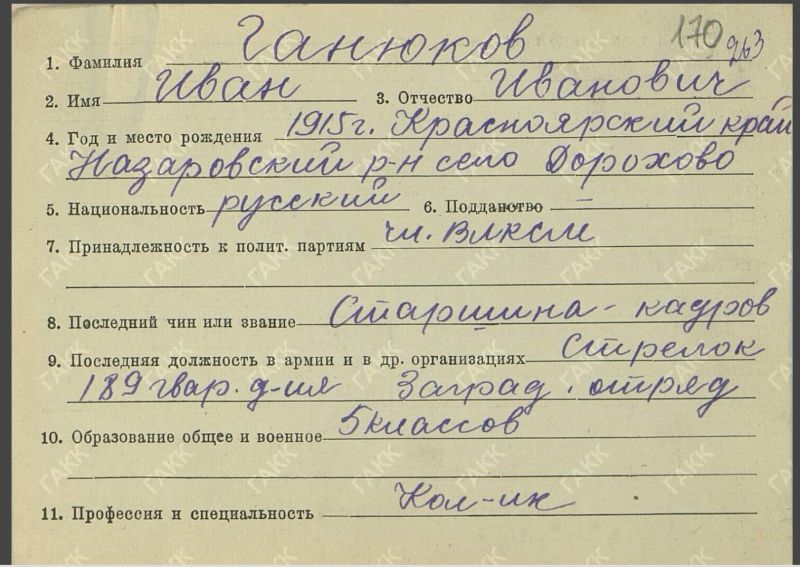 170 263
1. Фамилия Ганюков
2. Имя Иван 3. Отчество Иванович
4. Год и место рождения 1915г. Красноярский край
Назаровский р-н село Дорохово
5. Национальность русский 6. Подданство —
7. Принадлежность к полит. партиям чл. ВЛКСМ
8. Последний чин или звание Старшина - кадров
9. Последняя должность в армии и в др. организациях Стрелок
189 гвар. д-ия Заград. отряд
10. Образование общее и военное 5 классов
11. Профессия и специальность Кол-ик